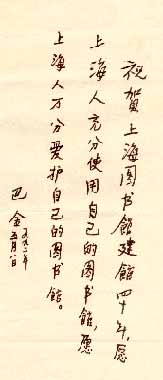 祝贺上海图书馆建馆四十年,愿
上海人充分使用自己的图书馆,愿
上海人万分爱护自己的图书馆。
巴金
一九九二年
五月八日